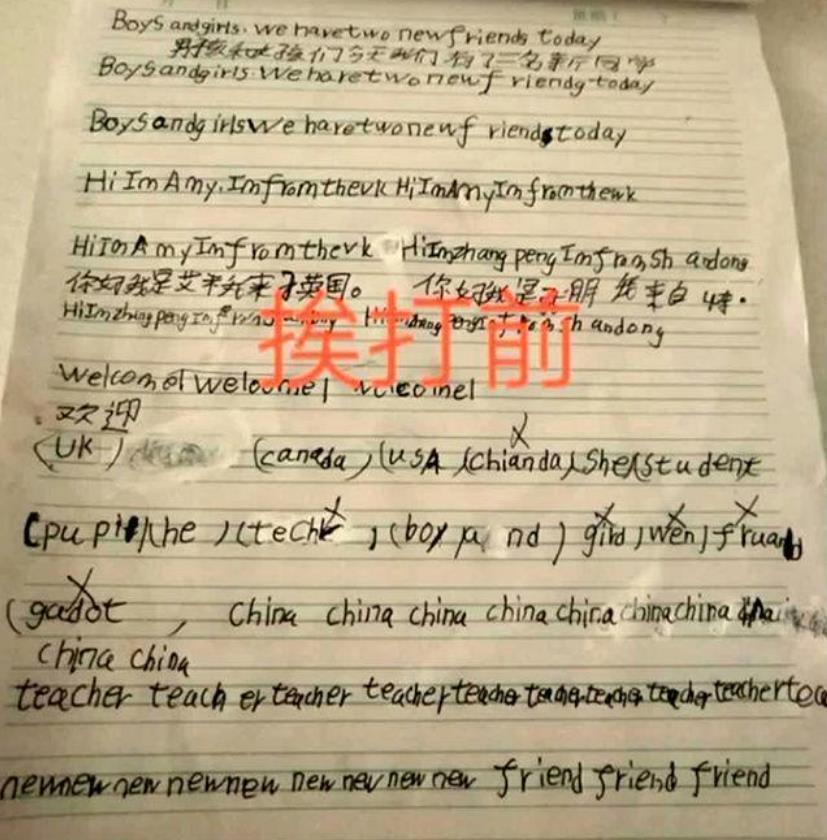 Boys andgirls. we havetwo newfriends today
男孩和女孩们今天我们有了二名新同学
Boysandgirls.Wehavetwonewf riendg today
Boysandg irlsWe havetwonewf riendstoday
Hi ImAmy.ImfromtheUk HiImAmyImfromtheuk
HiImA myImfromtheUk HiImzhang pengImfromSh andong
你好我是艾米我来于英国。 你好我是 朋 我来自
HiImzhang peng Imf HiImzhang peng Imf rom sh andong
挨打前
Welcome!Welcome! welcome!
欢迎
(UK) (canada)(USA)(chianda)She)(student
(pupil)(he )(tech ),(boy nd) gird)wen)fruand
(gadot , China china china china china china china
china china
teacher teach er teacher teacher teacher teacher teacher teacher teacher tea
newnew new newnew new new new new friend friend friend